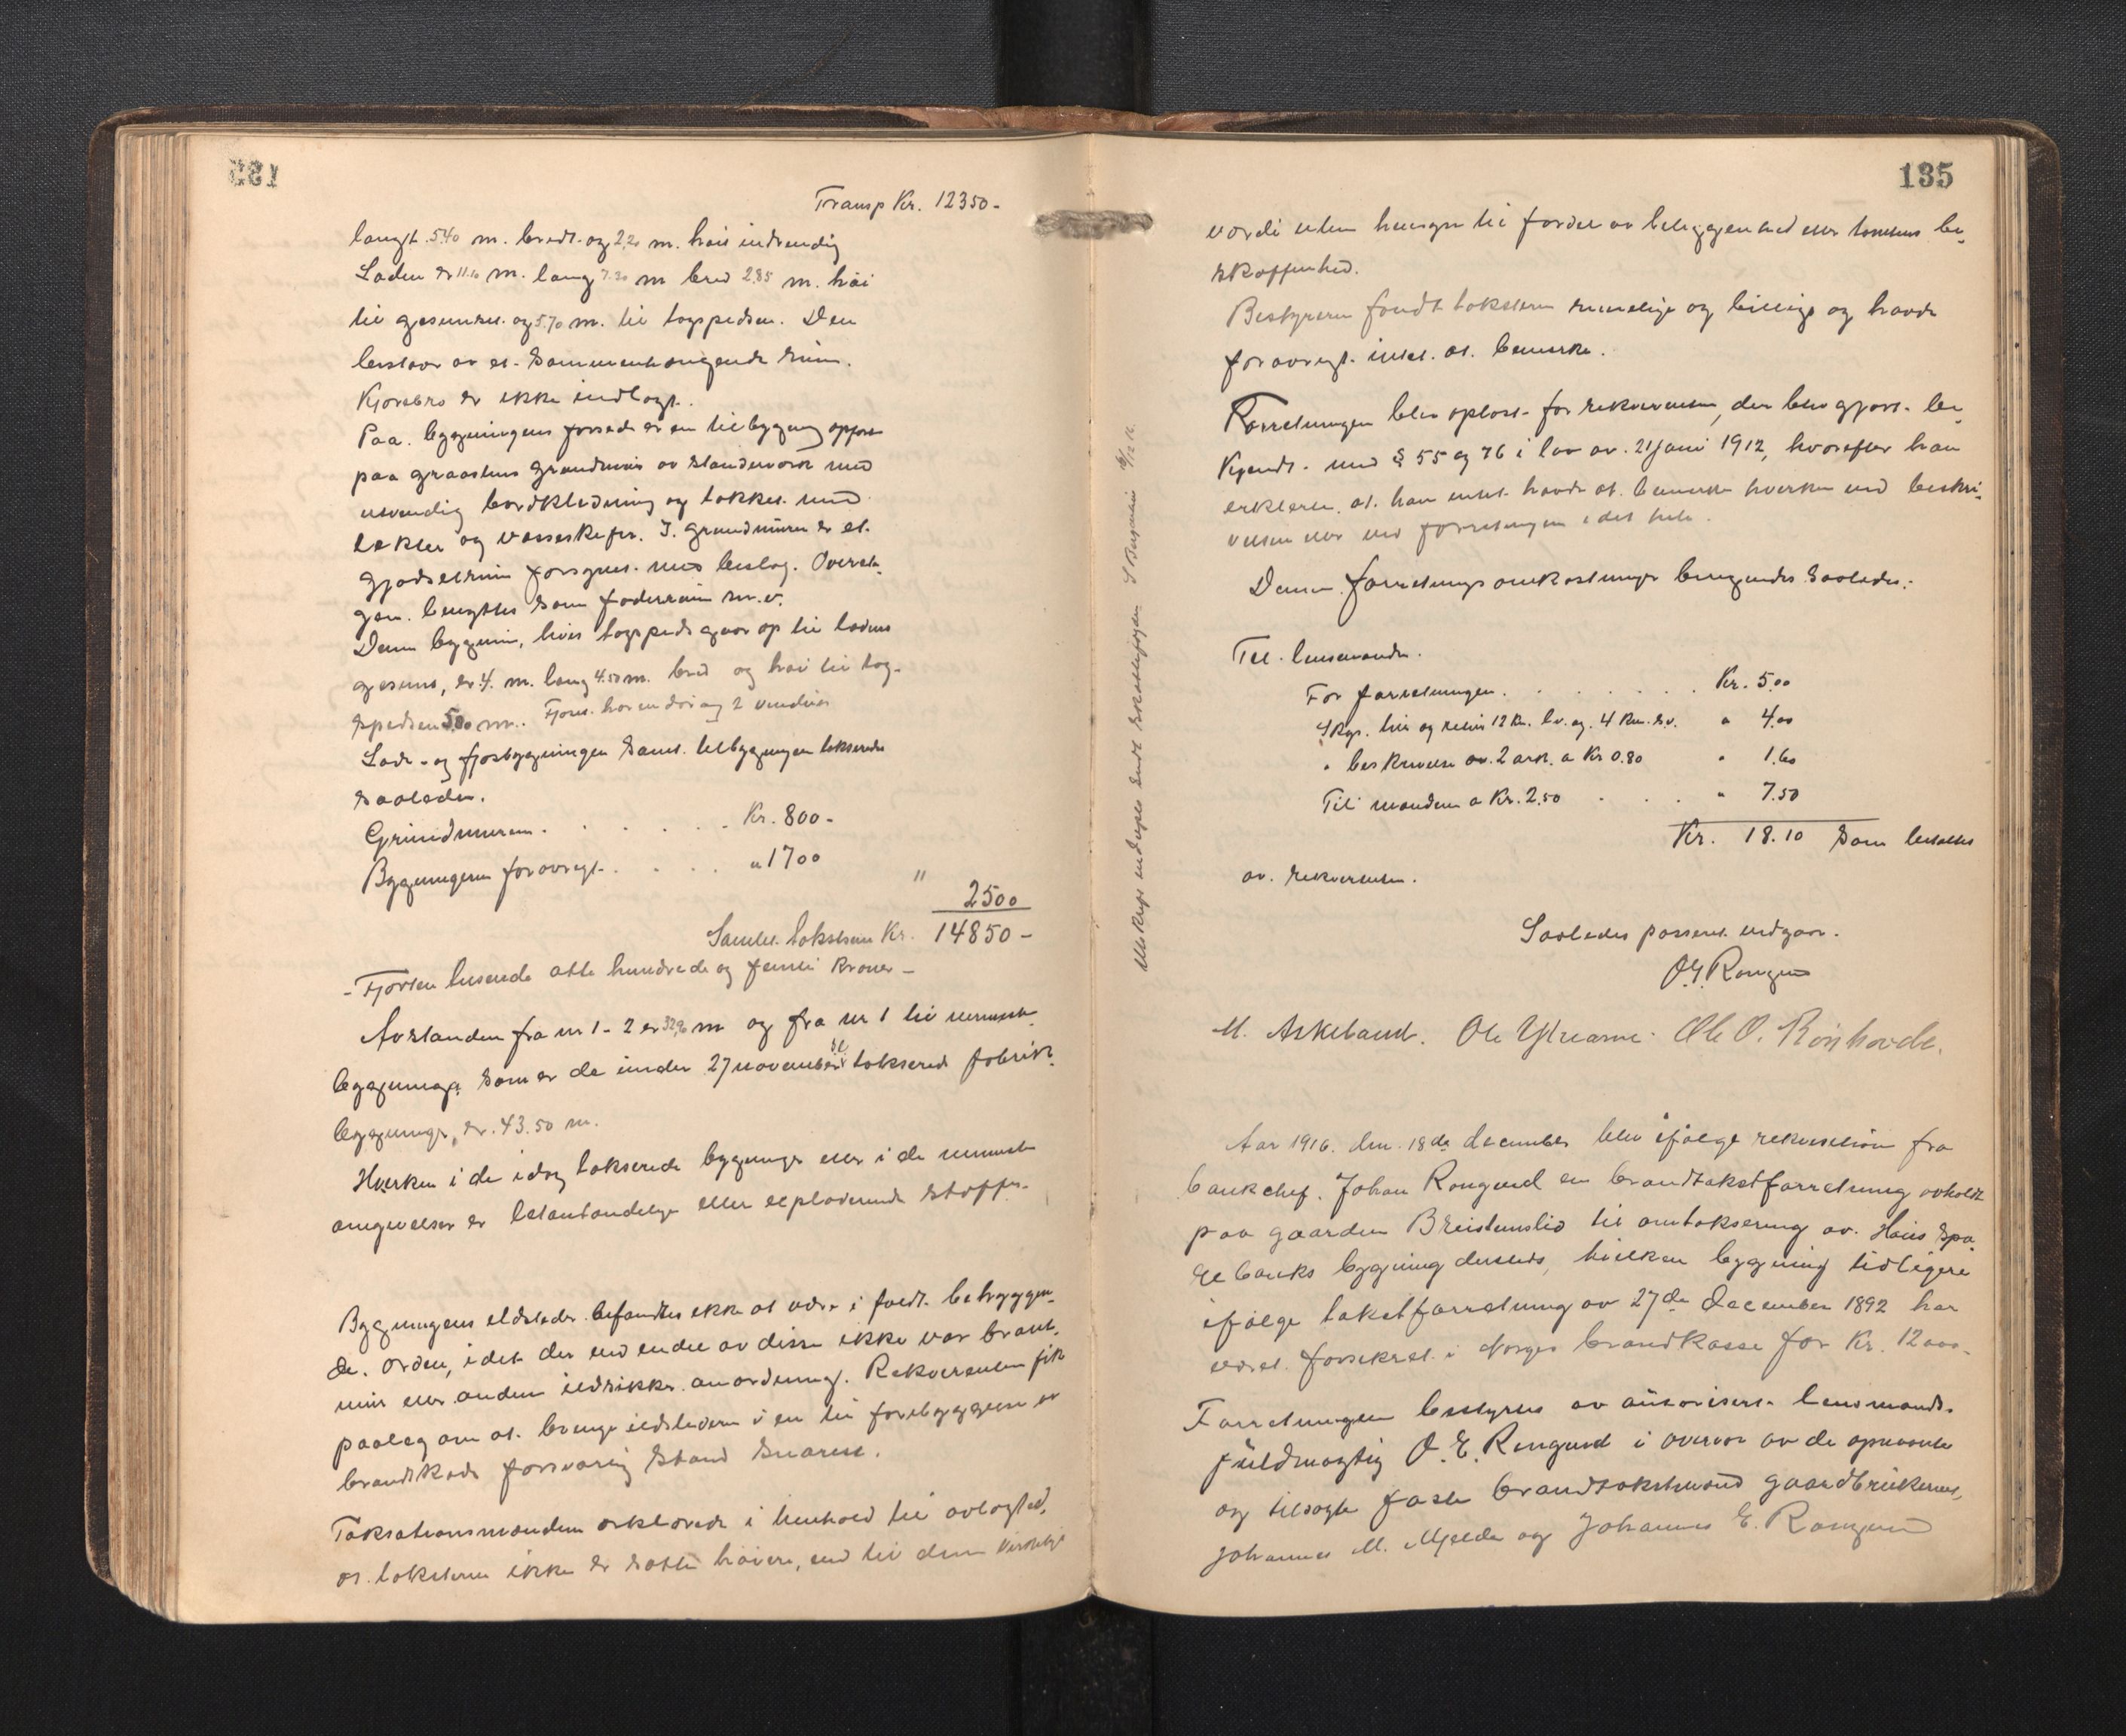 Transp Kr. 12350-
langt 5.40 m. bredt og 2,20 m. høit indvendig
Laden er 11.10 m. lang 7.20 m bred 2.85 m. høi
til gesimsen og 5.70 m. til tagspedsen. Den
bestaar av et sammenhængende rum.
Kjørebro er ikke indlagt.
Paa bygningens forside er en tilbygning opført
paa graastens grundmur av standerverk med
utvendig bordklædning og tækket med
lekter og vasseskifer. I grundmuren er et
gjødselrum forsynet med beslag. Overet-
gen benyttes som foderrum m.v.
Denne bygning, hvis tagspeds gaar op til ladens
gesims, er 4. m. lang 4.50 m. bred og høi til tag-
spedsen 5,00 m.. Fjøset har en dør og 2 vinduer
Lade- og fjøsbygningen samt tilbygningen takseredes
saaledes.
Grundmuren . . . . . Kr. 800-
Bygningen forøvrigt . . . . " 1700
" 2500
Samlet takstsum Kr. 14850-
- Fjorten tusende otte hundrede og femti kroner -
Avstanden fra nr 1-2 er 32,90 m og fra nr 1 til nærmeste
bygninger som er de under 27 november d.å. takserede fabrik-
bygninger, er 43.50 m.
Hverken i de idag takserede bygninger eller i de nærmeste
omgivelser er letantændelige eller exploderende stoffer.
Bygningens ildsteder befandtes ikke at være i fuldt betryggen-
de orden, idet der ved endel av disse ikke var brand-
mur eller anden ildsikker anordning. Rekvirenten fik
paalæg om at bringe ildstederne i en til forebyggelse av
brandskade forsvarlig stand snarest.
Taksationsmændene erklærede i henhold til avlagt ed,
at taksterne ikke er satte høiere, end til dens virkelige
135
værdi uten hensyn til fordel av beliggenhed eller tomtens be-
skaffenhed.
Bestyreren fandt taksterne rimelige og billige og havde
forøvrigt intet at bemerke.
Forretningen blev oplæst for rekvirenten, der blev gjort be-
kjendt med § 55 og 76 i lov av 21 juni 1912, hvorefter han
erklærte at han intet havde at bemerke hverken ved beskri-
velsen eller ved forretningen i det hele.
Denne forretnings omkostninger beregnedes saaledes:
Til lensmanden.
For forretningen . . . . . . Kr. 5.00
Skys. til og retur 12 km. lv. og 4 km. sv. " 4.00
" beskrivelse av 2 ark. a Kr 0.80 " 1.60
Til mændene a Kr. 2.50 . . . " 7.50
Kr. 18.10 som betaltes
av rekvirenten.
Saaledes passeret vidgaar.
O. E. Rongved
M. Askeland. Ole Ytrearne. Ole O. Rønhovde.
Utskrift
Aar 1916. den 18de december blev ifølge rekvisition fra
bankchef Johan Rongved en brandtakstforretning avholdt
paa gaarden Breistenslid til omtaksering av Haus Spa-
rebanks bygning dersteds, hvilken bygning tidligere
ifølge takstforretning av 27de december 1892 har
været forsikret i Norges brandkasse for Kr. 12000.
Forretningen bestyres av autorisert lensmands-
fuldmægtig O. E. Rongved i overvær av de opnævnte
og tilsagte faste brandtakstmænd gaardbrukerne,
Johannes M. Mjelde og Johannes E. Rongved